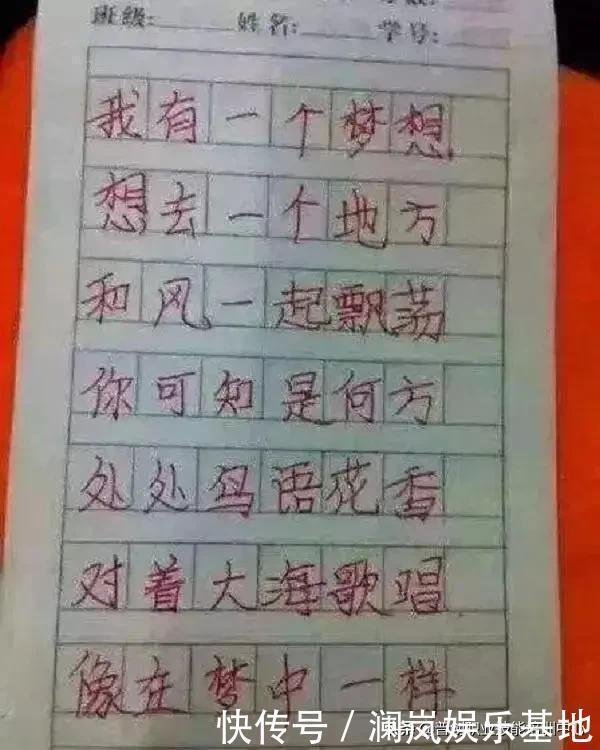 班级: 姓名: 学号:
我有一个梦想
想去一个地方
和风一起飘荡
你可知是何方
处处鸟语花香
对着大海歌唱
像在梦中一样
快传号/澜岚娱乐基地